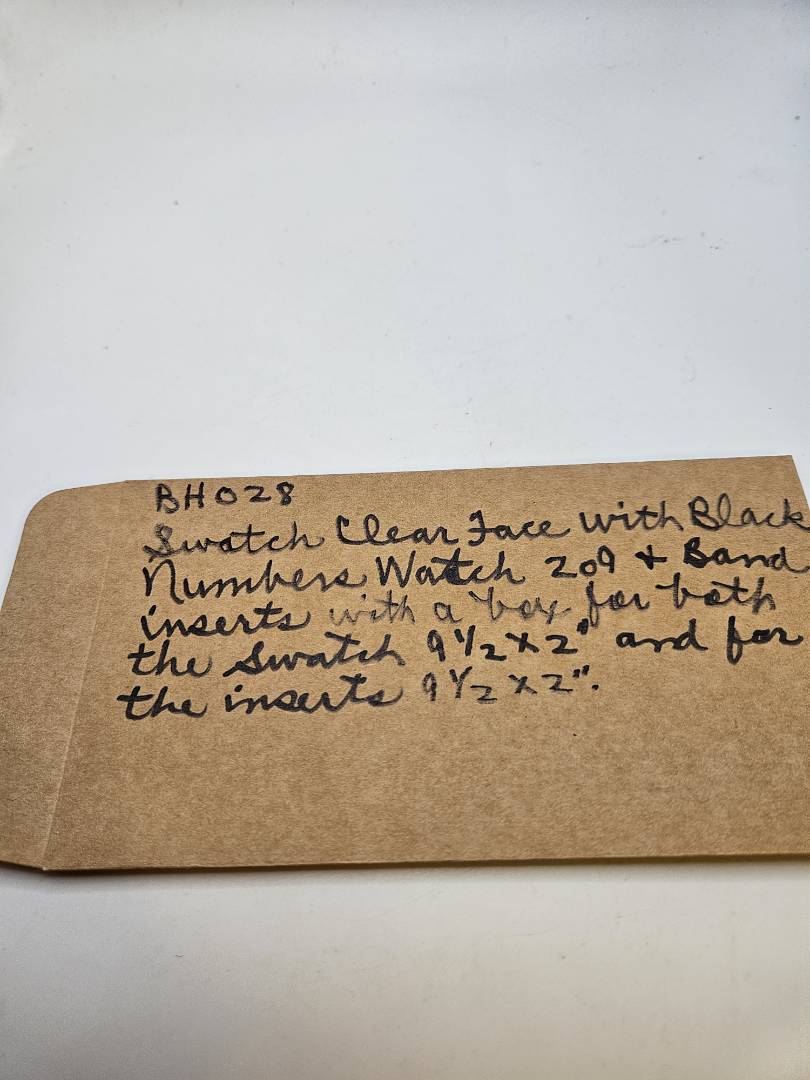 BH028
Swatch Clear Face with Black
Numbers Watch 209 & Band
inserts with a box for both
the Swatch 9 1/2 x 2" and for
the inserts 9 1/2 x 2".